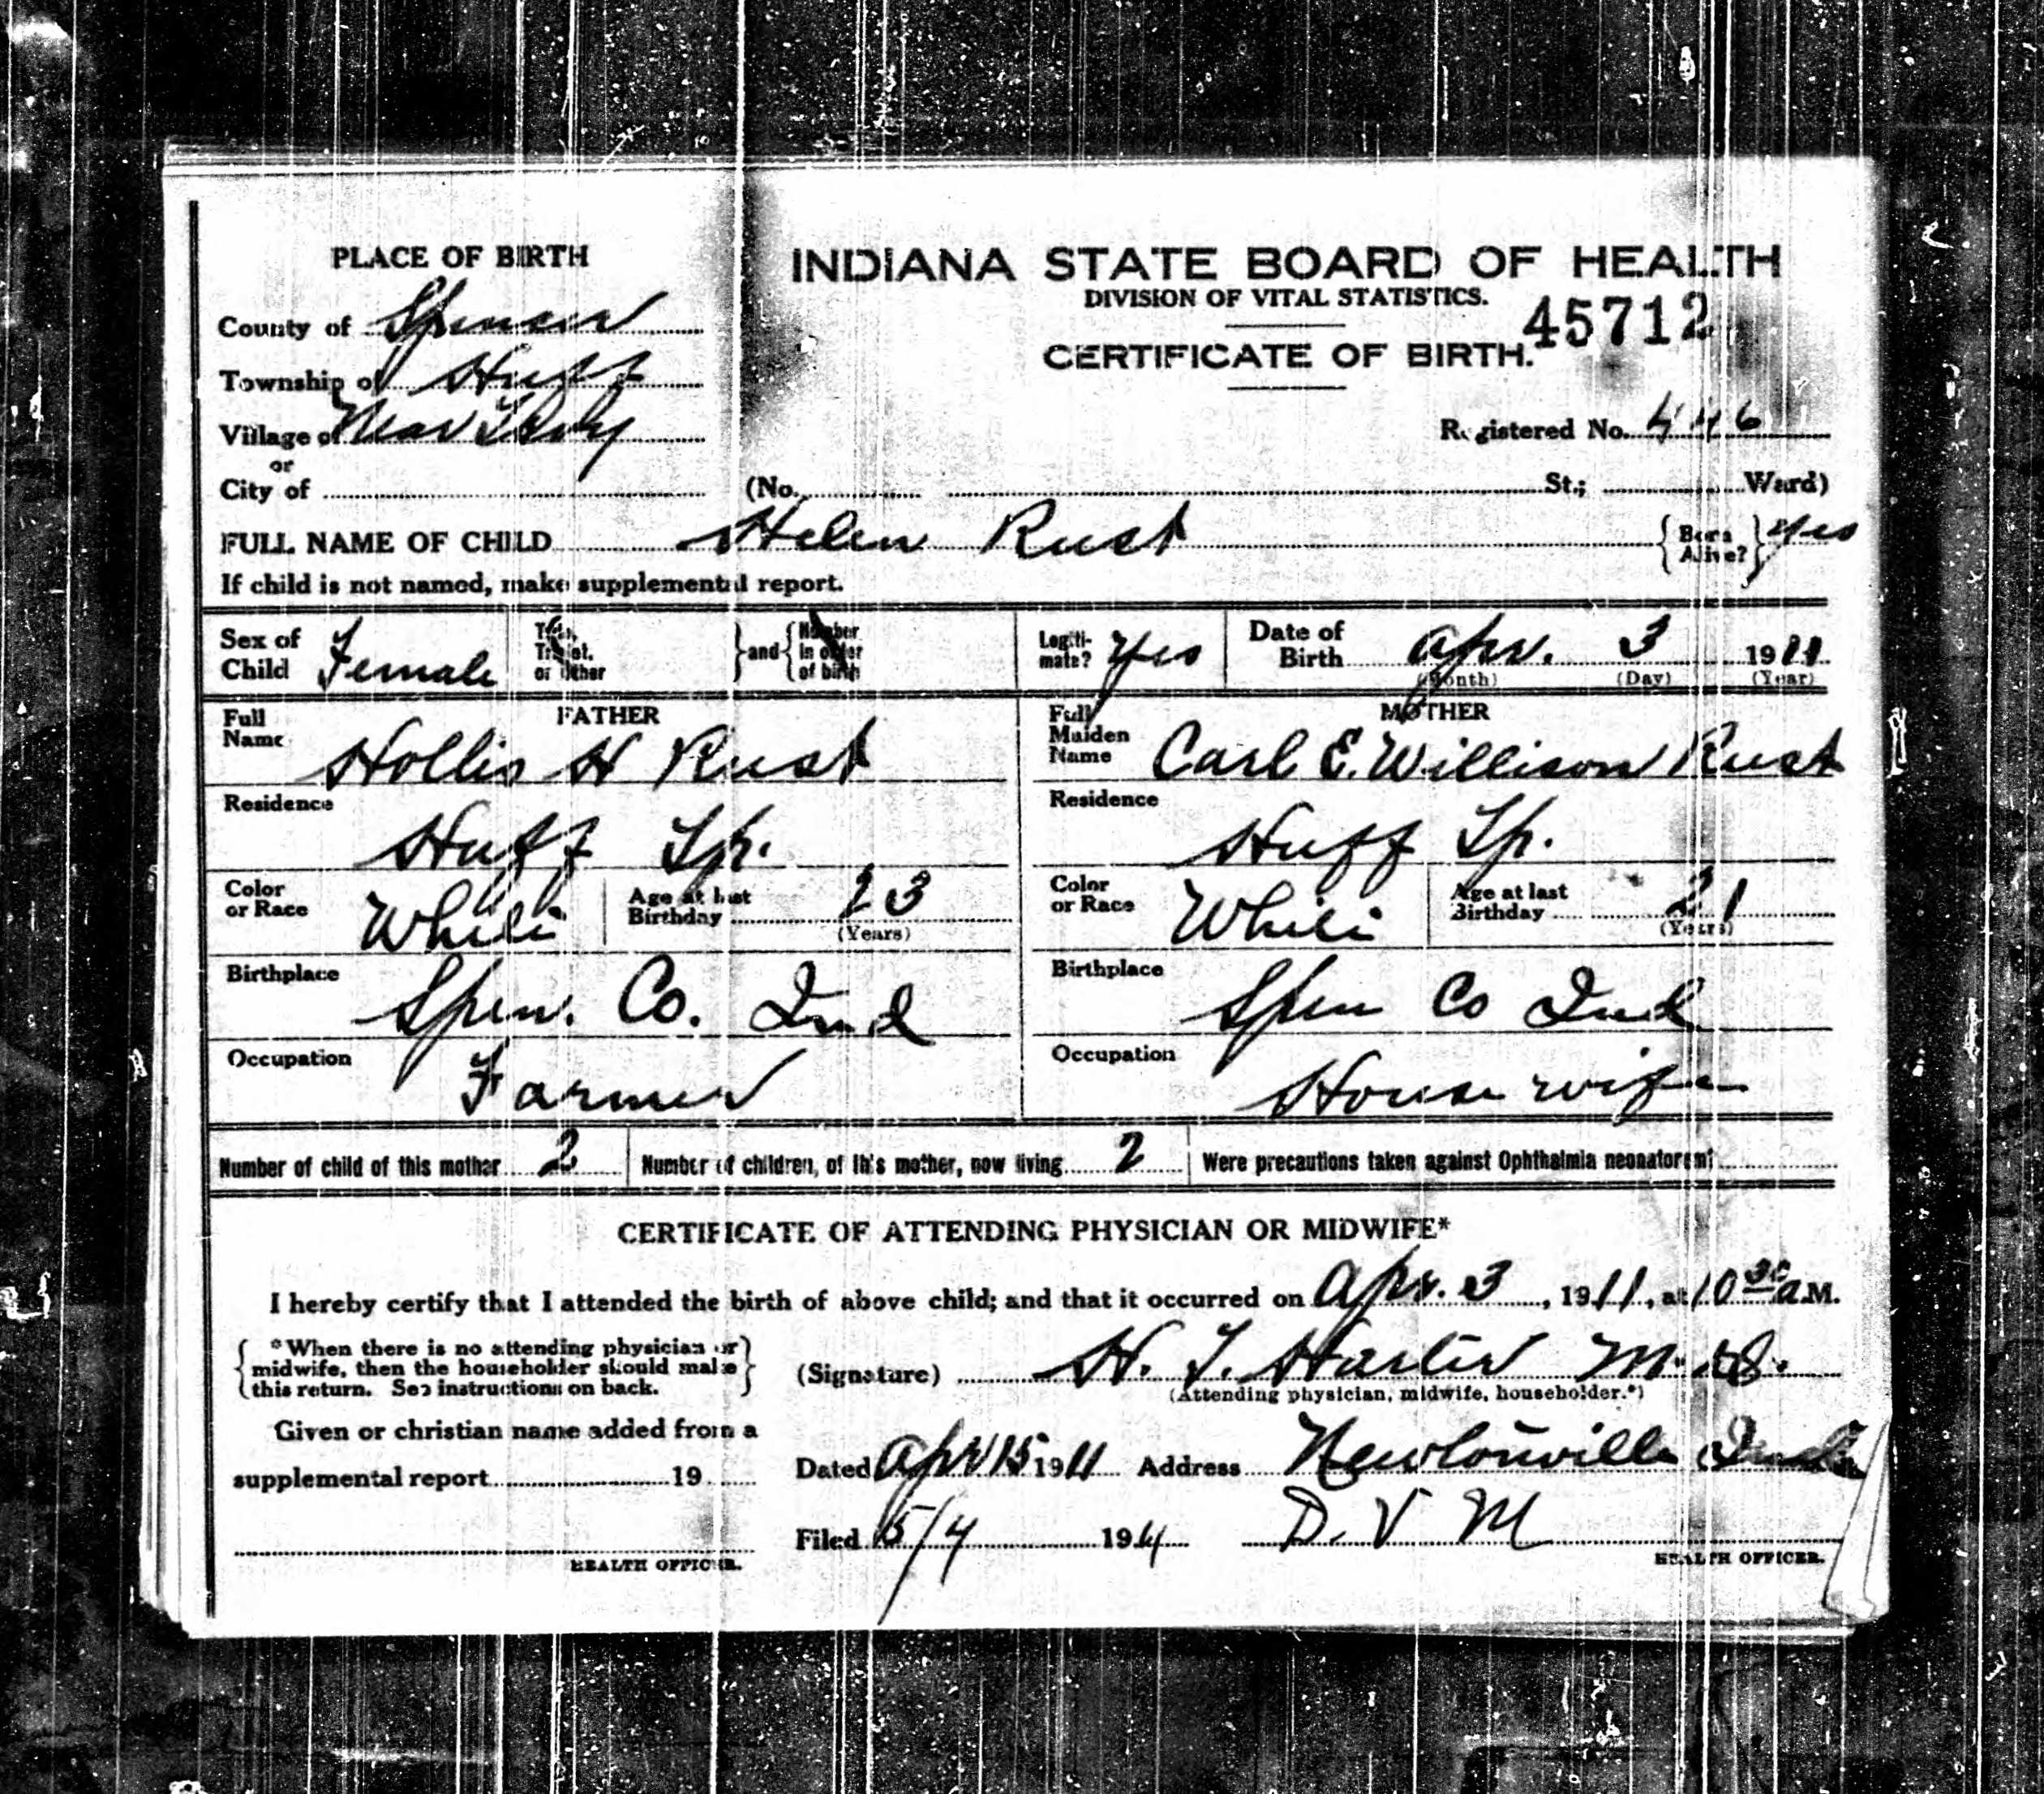 PLACE OF BIRTH
INDIANA STATE BOARD OF HEALTH
DIVISION OF VITAL STATISTICS.
45712
CERTIFICATE OF BIRTH.
County of Spencer
Township of Huff
Village of Near
Registered No. 446
or
City of (No. St.; Ward)
FULL NAME OF CHILD Helen Rust { Born Alive? } Yes
If child is not named, make supplemental report.
Sex of Child Female Twin, Triplet, or Other } and { Number in order of birth Legiti-mate? Yes Date of Birth Apr. 3 1911
(Month) (Day) (Year)
FATHER
Full Name Hollis H Rust
Residence Huff Tp.
Color or Race White Age at last Birthday 23 (Years)
Birthplace Spen. Co. Ind
Occupation Farmer
MOTHER
Full Maiden Name Carl E. Willison Rust
Residence Huff Tp.
Color or Race White Age at last Birthday 21 (Years)
Birthplace Spen Co Ind
Occupation House wife
Number of child of this mother 2 Number of children, of this mother, now living 2 Were precautions taken against Ophthalmia neonatorem?
CERTIFICATE OF ATTENDING PHYSICIAN OR MIDWIFE*
I hereby certify that I attended the birth of above child; and that it occurred on Apr. 3, 1911, at 10 30 a M.
{ *When there is no attending physician or
midwife, then the householder should make
this return. See instructions on back. }
(Signature) H. T. Harter M. D.
(Attending physician, midwife, householder.*)
Given or christian name added from a
supplemental report 19
HEALTH OFFICER.
Dated Apr 15 1911 Address Newtonville
Filed 5/4 1911 D. V M
HEALTH OFFICER.